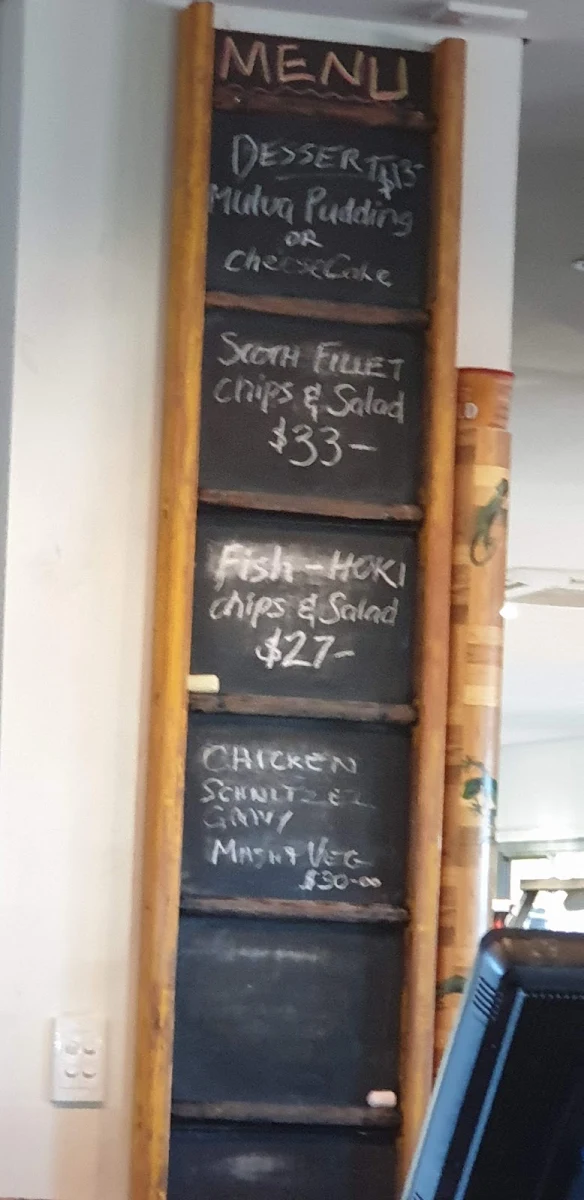 MENU
DESSERT $13-
Mulva Pudding
OR
cheeseCake
SCOTH FILLET
chips & Salad
$33-
Fish - HOKI
chips & Salad
$27-
CHICKEN
SCHNITZEL
GRAVY
MASH & VEG
$30-00